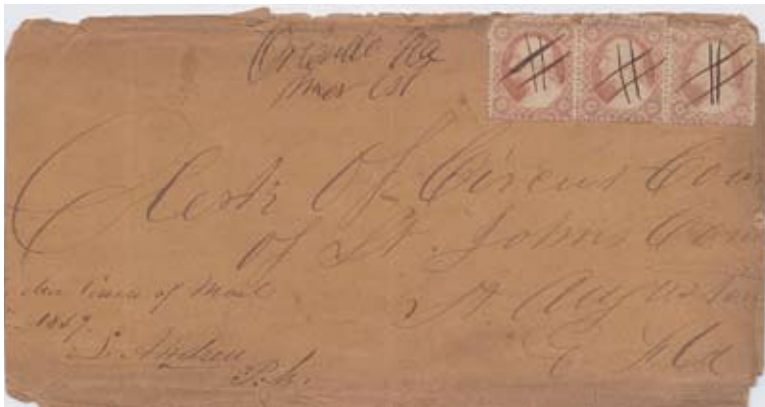 Orlando Fla
Mar 1st
Clerk Of Circuit Cour
of St. Johns Coun
St. Augustin
E Fla
of Mail
S. Andrew
P.M.